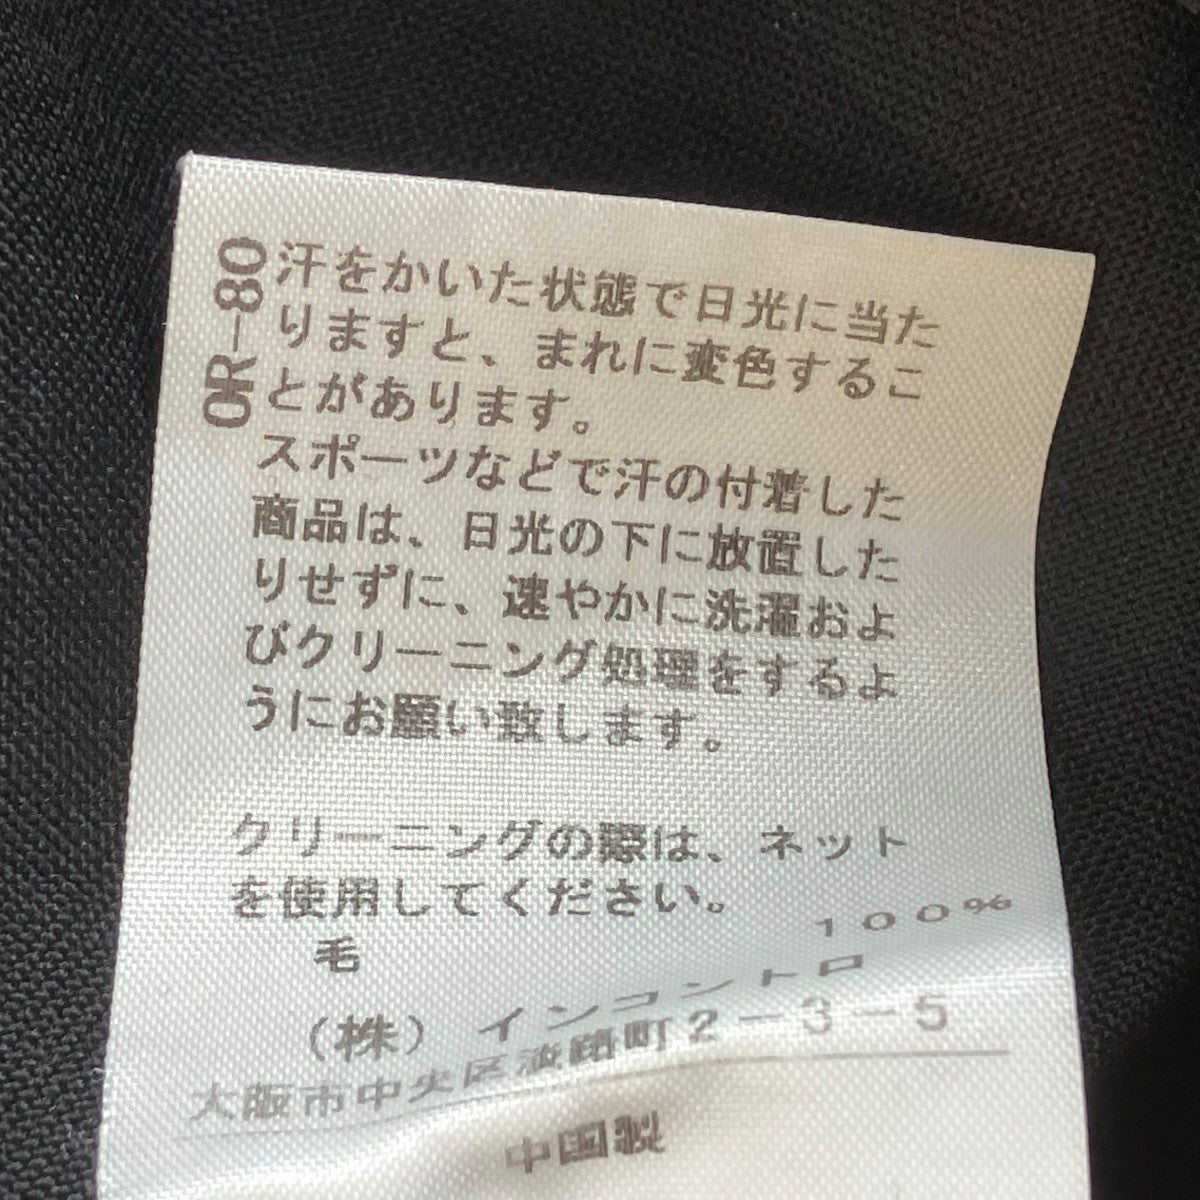 OR-80
汗をかいた状態で日光に当た
りますと、まれに変色するこ
とがあります。
スポーツなどで汗の付着した
商品は、日光の下に放置した
りせずに、速やかに洗濯およ
びクリーニング処理をするよ
うにお願い致します。
クリーニングの際は、ネット
を使用してください。
毛 100%
(株) インコントロ
大阪市中央区淡路町2-3-5
中国製